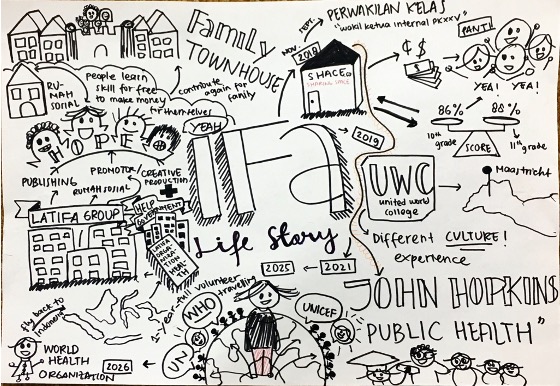 Family
TOWNHOUSE
NOV. 2018
SHACE.
SHARING SPACE
SEPT.
PERWAKILAN KELAS
"wakil ketua internal PKXXV"
PANTI
YEA!
YEA!
¢ $
86%
88%
10th grade
SCORE
11th grade
2019
UWC
united world
college
Maastricht
Different CULTURE!
experience
RU-
MAH
SOSIAL
people learn
skill for free
to make money
for themselves
contribute
again for
family
YEAH
HOPE
PUBLISHING
PROMOTOR/
RUMAH SOSIAL
CREATIVE
PRODUCTION
LATIFA GROUP
HELP
GOVERNMENT
IFa
Life Story
2025
2021
JOHN HOPKINS
PUBLIC HEALTH"
volunteer
traveling
WHO
UNICEF
UN
fly back to
Indonesia
WORLD
HEALTH
ORGANIZATION
2026